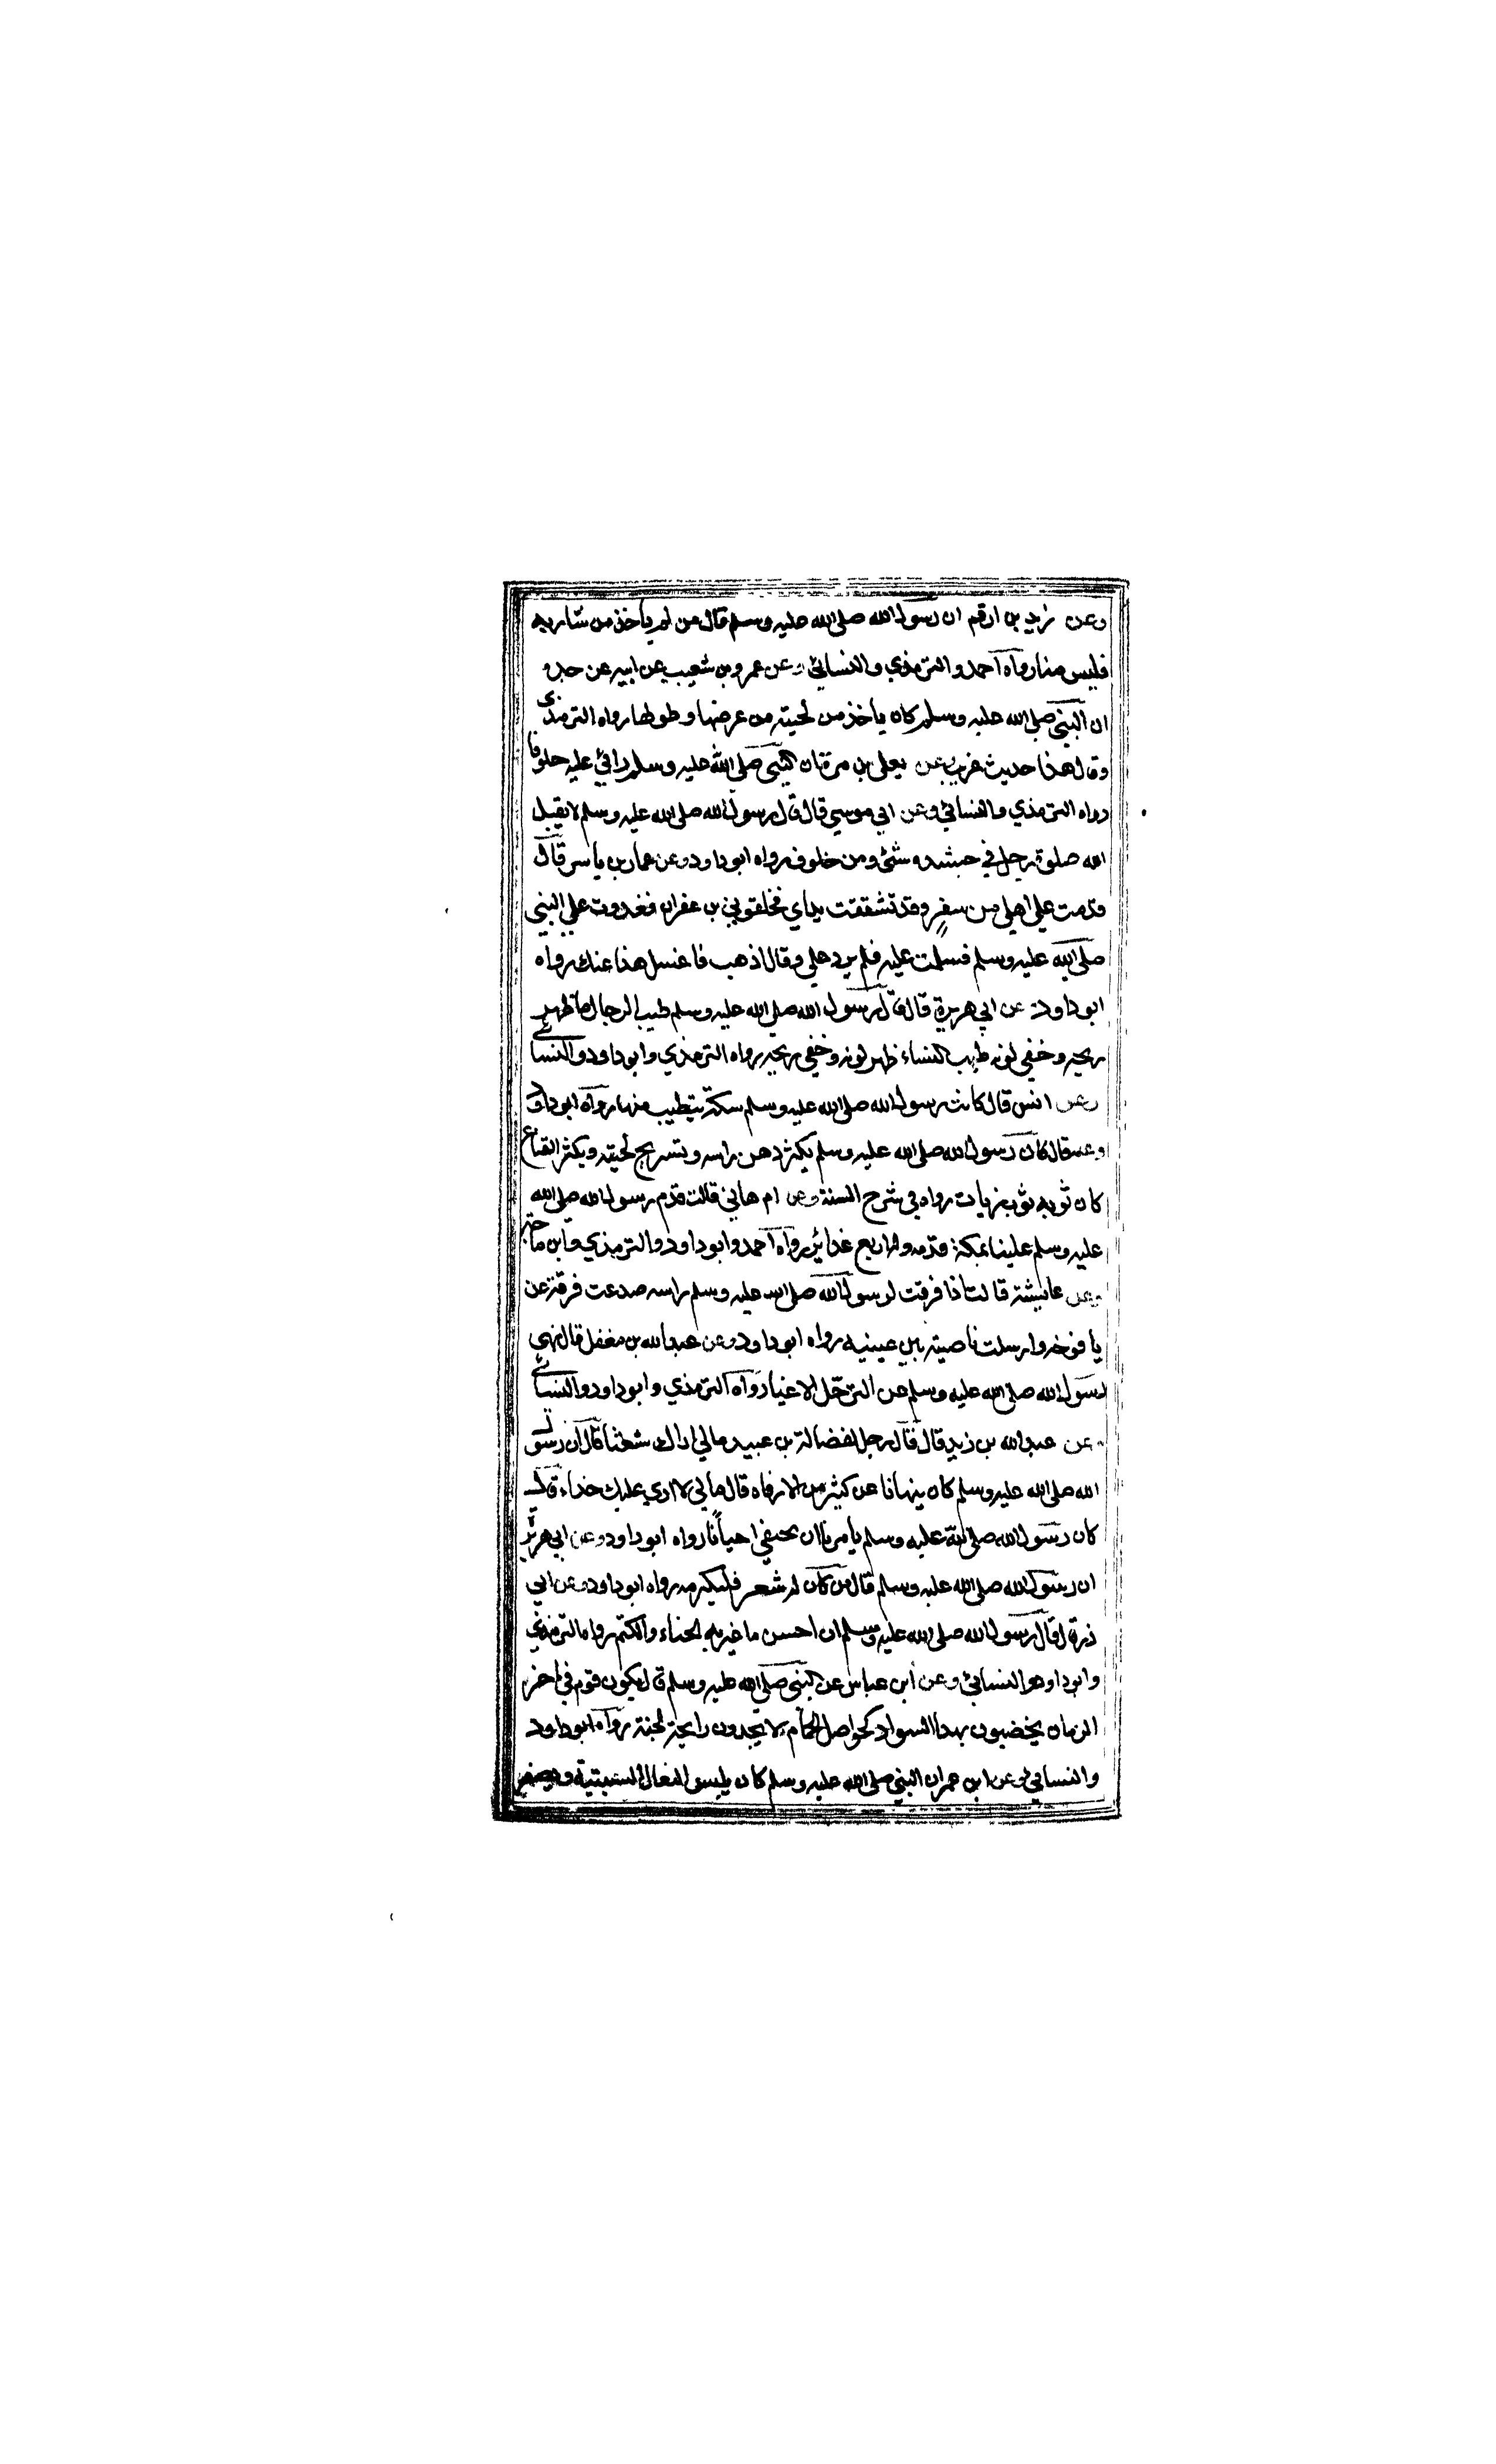 وعن زيد بن ارقم ان رسول الله صلى الله عليه وسلم قال من لم يأخذ من شاربه
فليس منا رواه احمد والترمذي والنسائي وعن عمرو بن شعيب عن ابيه عن جده
ان النبي صلى الله عليه وسلم كان يأخذ من لحيته من عرضها وطولها رواه الترمذي
وقال هذا حديث غريب وعن يعلى بن مرة ان النبي صلى الله عليه وسلم رائي عليه خلوقا
رواه الترمذي والنسائي وعن ابي موسي قال قال رسول الله صلى الله عليه وسلم لا يقبل
الله صلوة رجل في شئ من خلوق رواه ابو داود وعن عمار بن ياسر قال
قدمت علي اهلي من سفر وقد تشققت يداي فخلقوني بزعفران فغدوت علي النبي
صلى الله عليه وسلم فسلمت عليه فلم يرد علي وقال اذهب فاغسل هذا عنك رواه
ابو داود وعن ابي هريرة قال قال رسول الله صلى الله عليه وسلم طيب الرجال ما ظهر
ريحه وخفي لونه طيب النساء ظهر لونه وخفي ريحه رواه الترمذي وابو داود والنسائي
وعن انس قال كانت رسول الله صلى الله عليه وسلم سكة يتطيب منها رواه ابو داود
وعنه قال كان رسول الله صلى الله عليه وسلم يكثر دهن راسه وتسريح لحيته ويكثر القناع
كان ثوبه ثوب زيات رواه في شرح السنة وعن ام هاني قالت قدم رسول الله صلى الله
عليه وسلم علينا بمكة قدمه وله اربع غدائر رواه احمد وابو داود والترمذي وابن ماجه
وعن عايشة قالت اذا فرقت لرسول الله صلى الله عليه وسلم راسه صدعت فرقته عن
يافوخه وارسلت ناصيته بين عينيه رواه ابو داود وعن عبد الله بن مغفل قال نهي
رسول الله صلى الله عليه وسلم عن الترجل الا غبا رواه الترمذي وابو داود والنسائي
وعن عبد الله بن زيد قال قال رجل لفضالة بن عبيد مالي اراك شعثا قال ان رسول
الله صلى الله عليه وسلم كان ينهانا عن كثير من الارفاه قال مالي لا اري عليك حذاء قال
كان رسول الله صلى الله عليه وسلم يأمرنا ان نحتفي احيانا رواه ابو داود وعن ابي هريرة
ان رسول الله صلى الله عليه وسلم قال من كان له شعر فليكرمه رواه ابو داود وعن ابي
ذر قال قال رسول الله صلى الله عليه وسلم ان احسن ما غير به الحناء والكتم رواه الترمذي
وابو داود والنسائي وعن ابن عباس عن النبي صلى الله عليه وسلم قال يكون قوم في اخر
الزمان يخضبون بهذا السواد كحواصل الحمام لا يجدون رايحة الجنة رواه ابو داود
والنسائي وعن ابن عمر ان النبي صلى الله عليه وسلم كان يلبس النعال السبتية ويصفر